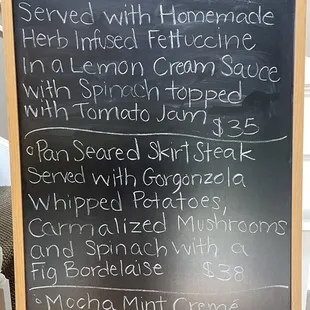 Served with Homemade
Herb Infused Fettuccine
In a Lemon Cream Sauce
with Spinach topped
with Tomato Jam $35
Pan Seared Skirt Steak
Served with Gorgonzola
Whipped Potatoes,
Carmalized Mushrooms
and Spinach with a
Fig Bordelaise $38
Mocha Mint Cremé